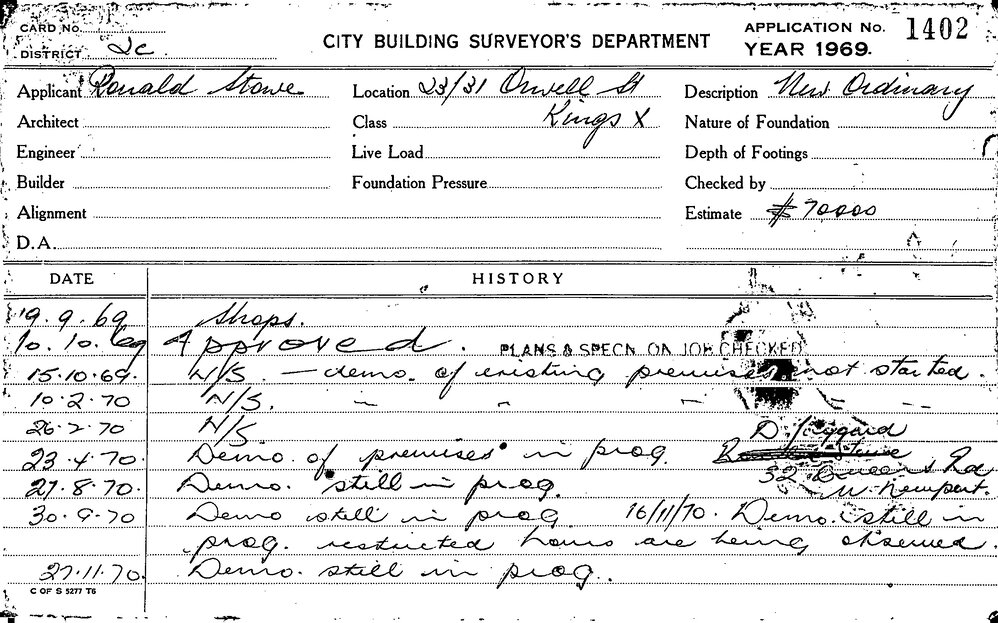 CARD No.
DISTRICT 2c
CITY BUILDING SURVEYOR'S DEPARTMENT
APPLICATION No. 1402
YEAR 1969.
Applicant Ronald Stowe
Location 23/31 Orwell St
Kings X
Description New Ordinary
Architect
Class
Nature of Foundation
Engineer
Live Load
Depth of Footings
Builder
Foundation Pressure
Checked by
Alignment
Estimate $70000
D.A.
DATE HISTORY
19.9.69 Shops.
10.10.69 Approved. PLANS & SPECN. ON JOB CHECKED
15.10.69. N/S. — demo. of existing premises not started.
10.2.70 N/S. — — — —
26.2.70 N/S. D.
23.4.70. Demo. of premises in prog.
27.8.70. Demo. still in prog. 32 Rd
30.9.70 Demo still in prog. 16/11/70. Demo. still in
prog. restricted hours are being observed.
27.11.70. Demo. still in prog.
C OF S 5277 T6